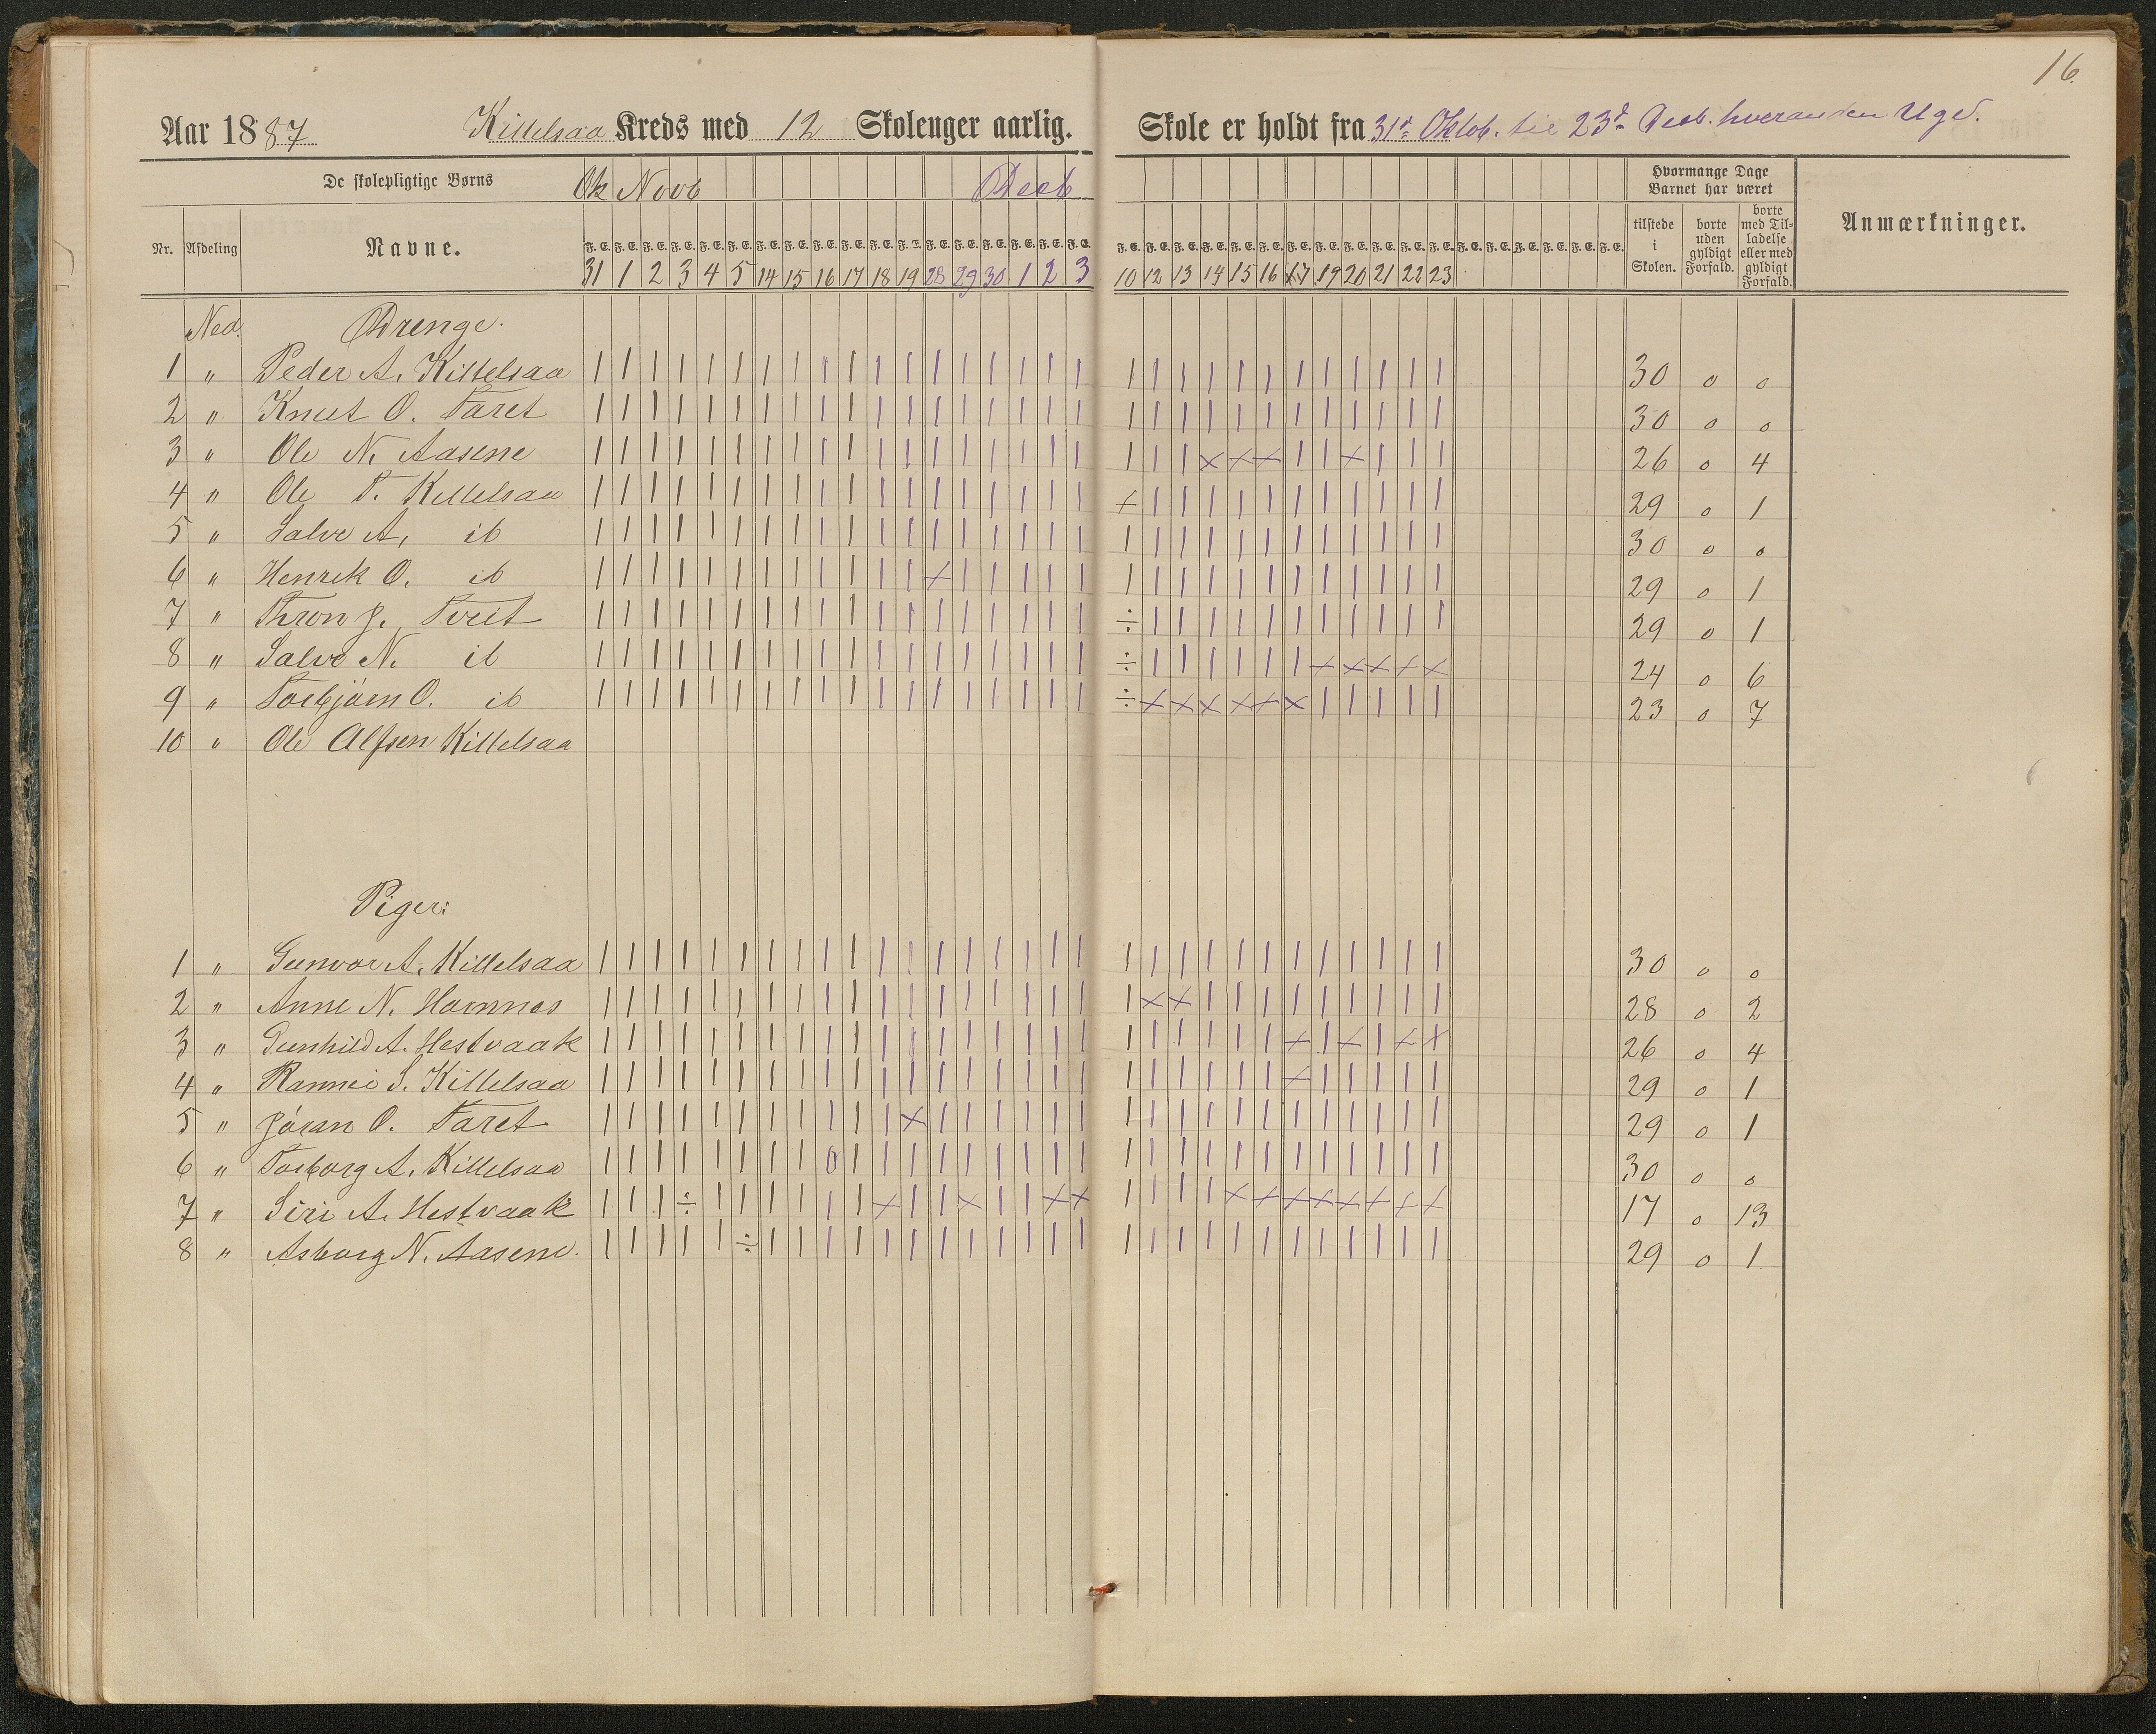 16.
Aar 1887 Kittelsaa Kreds med 12 Skoleuger aarlig. Skole er holdt fra 31te Oktob. til 23de Decb. hveranden Uge.
De skolepligtige Børns Ok Novb Decb Hvormange Dage Barnet har været
Nr. Afdeling Navne. F. E. F. E. F. E. F. E. F. E. F. E. F. E. F. E. F. E. F. E. F. E. F. E. F. E. F. E. F. E. F. E. F. E. F. E. F. E. F. E. F. E. F. E. F. E. F. E. F. E. F. E. F. E. F. E. F. E. F. E. F. E. F. E. F. E. F. E. F. E. F. E. tilstede i Skolen. borte uden gyldigt Forfald. borte med Tilladelse eller med gyldigt Forfald. Anmærkninger.
31 1 2 3 4 5 14 15 16 17 18 19 28 29 30 1 2 3 10 12 13 14 15 16 17 19 20 21 22 23
Ned. Drenge.
1 " Peder A. Kittelsaa | | | | | | | | | | | | | | | | | | | | | | | | | | | | | | 30 0 0
2 " Knut O. Taret | | | | | | | | | | | | | | | | | | | | | | | | | | | | | | 30 0 0
3 " Ole N. Aasene | | | | | | | | | | | | | | | | | | | | | × × × | | × | | | 26 0 4
4 " Ole T. Kittelsaa | | | | | | | | | | | | | | | | | | + | | | | | | | | | | | 29 0 1
5 " Salve A. ib | | | | | | | | | | | | | | | | | | | | | | | | | | | | | | 30 0 0
6 " Henrik O. ib | | | | | | | | | | | | × | | | | | | | | | | | | | | | | | 29 0 1
7 " Thron J. Tveit | | | | | | | | | | | | | | | | | | ÷ | | | | | | | | | | | 29 0 1
8 " Salve N. ib | | | | | | | | | | | | | | | | | | ÷ | | | | | | × × × × × 24 0 6
9 " Torbjörn O. ib | | | | | | | | | | | | | | | | | | ÷ × × × × × × | | | | | 23 0 7
10 " Ole Alfsen Kittelsaa
Piger:
1 " Gunvor A. Kittelsaa | | | | | | | | | | | | | | | | | | | | | | | | | | | | | | 30 0 0
2 " Anne N. Hamnes | | | | | | | | | | | | | | | | | | | × × | | | | | | | | | 28 0 2
3 " Gunhild A. Hestvaak | | | | | | | | | | | | | | | | | | | | | | | | × | × | × × 26 0 4
4 " Rannei S. Kittelsaa | | | | | | | | | | | | | | | | | | | | | | | | × | | | | | 29 0 1
5 " Jöran O. Taret | | | | | | | | | | | × | | | | | | | | | | | | | | | | | | 29 0 1
6 " Torborg A. Kittelsaa | | | | | | | | 0 | | | | | | | | | | | | | | | | | | | | | 30 0 0
7 " Siri A. Hestvaak | | | ÷ | | | | | | × | | × | | × × | | | | × × × × × × × × 17 0 13
8 " Asborg N. Aasene. | | | | | ÷ | | | | | | | | | | | | | | | | | | | | | | | | 29 0 1.